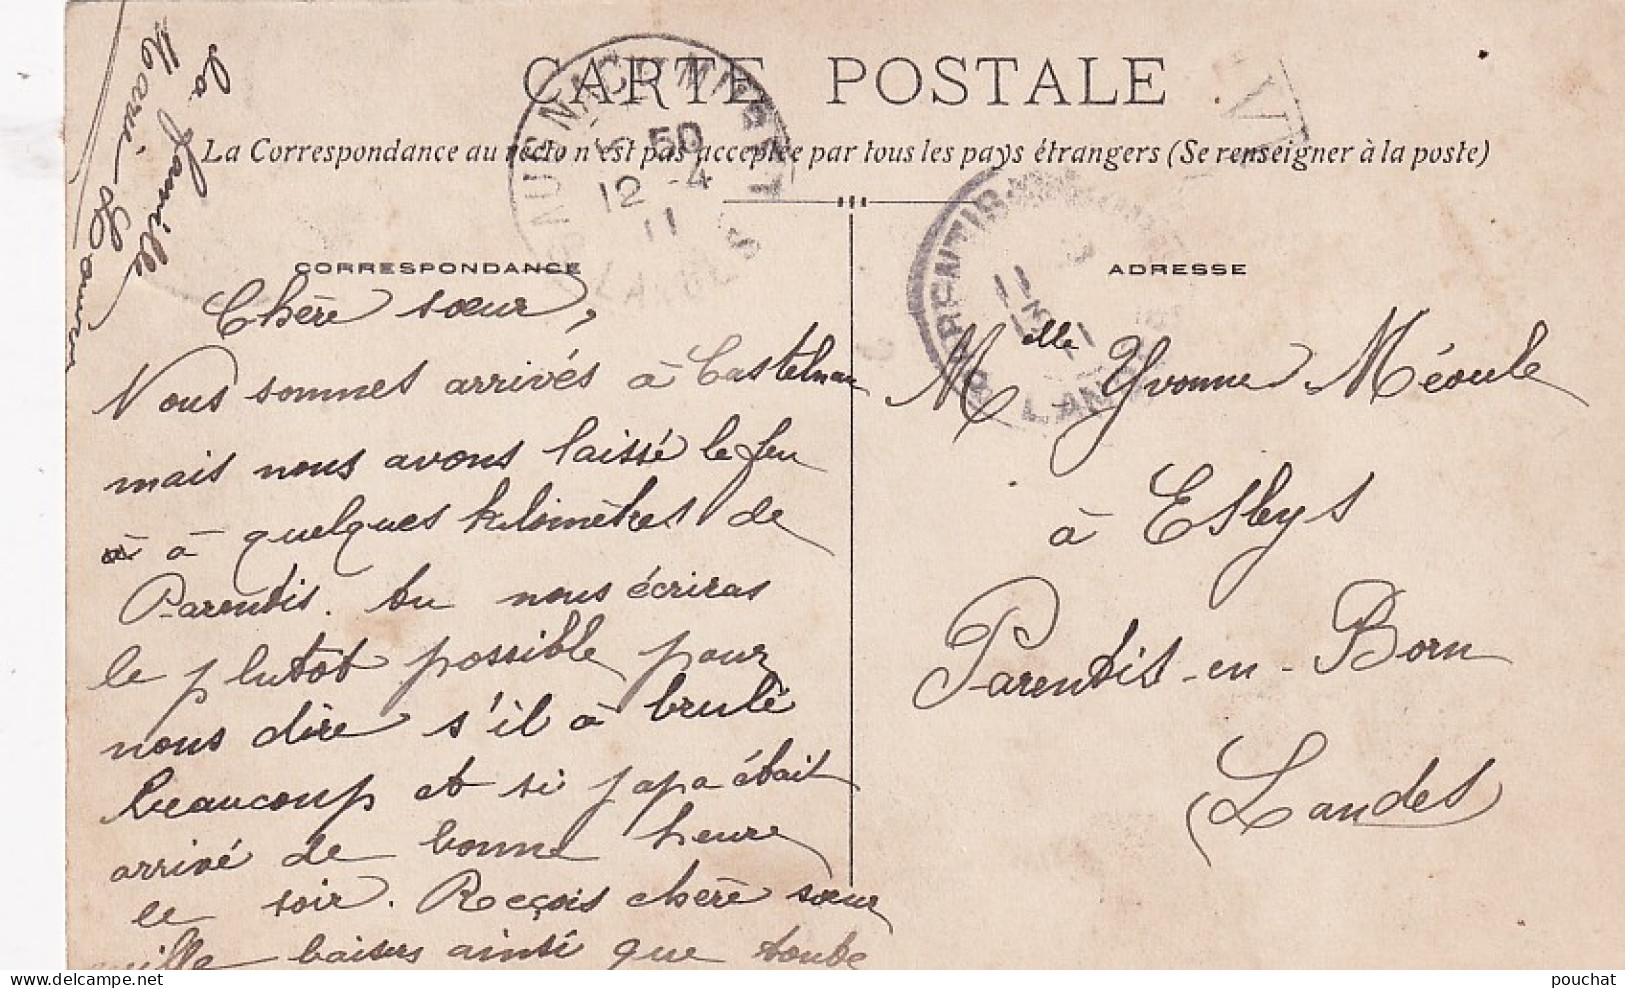 CARTE POSTALE
La Correspondance au recto n'est pas acceptée par tous les pays étrangers (Se renseigner à la poste)
CORRESPONDANCE
Chère sœur,
Nous sommes arrivés à Castelnau
mais nous avons laissé le feu
à à quelques kilomètres de
Parentis. tu nous écriras
le plutôt possible pour
nous dire s'il à brulé
beaucoup et si papa était
arrivé de bonne heure
le soir. Reçois chère sœur
mille baisers ainsi que toute
la famille
Marie
ADRESSE
Melle Yvonne Méoule
à Esleys
Parentis-en-Born
Landes
50
12 -4
11
LANDES
PARENTIS
11
LANDES
pouchat